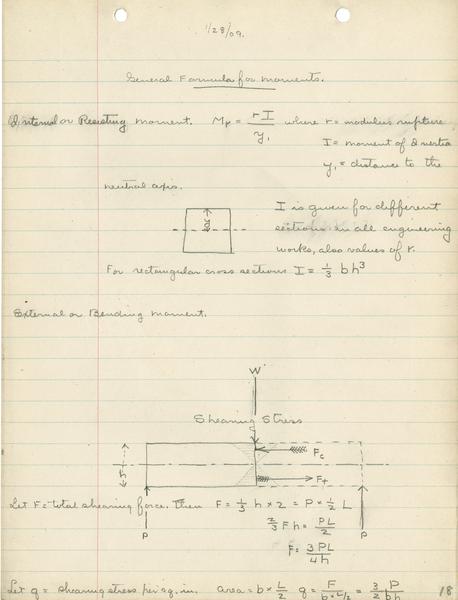 1/28/09.
General Formula for moments.
Internal or Resisting moment. Mr = rI/y₁ where r = modulus rupture
I = moment of Inertia
y₁ = distance to the
neutral axis.
I is given for different
sections in all engineering
works, also values of r.
For rectangular cross sections I = 1/3 bh³
External or Bending moment.
W
Shearing Stress
h
Fc
Ft
Let F = total shearing force. Then F = 1/3 h × 2 = P × 1/2 L
2/3 Fh = PL/2
F = 3PL/4h
P
P
Let q = shearing stress per sq. in. area = b × L/2 q = F/(b × L/2) = 3/2 P/bh
18